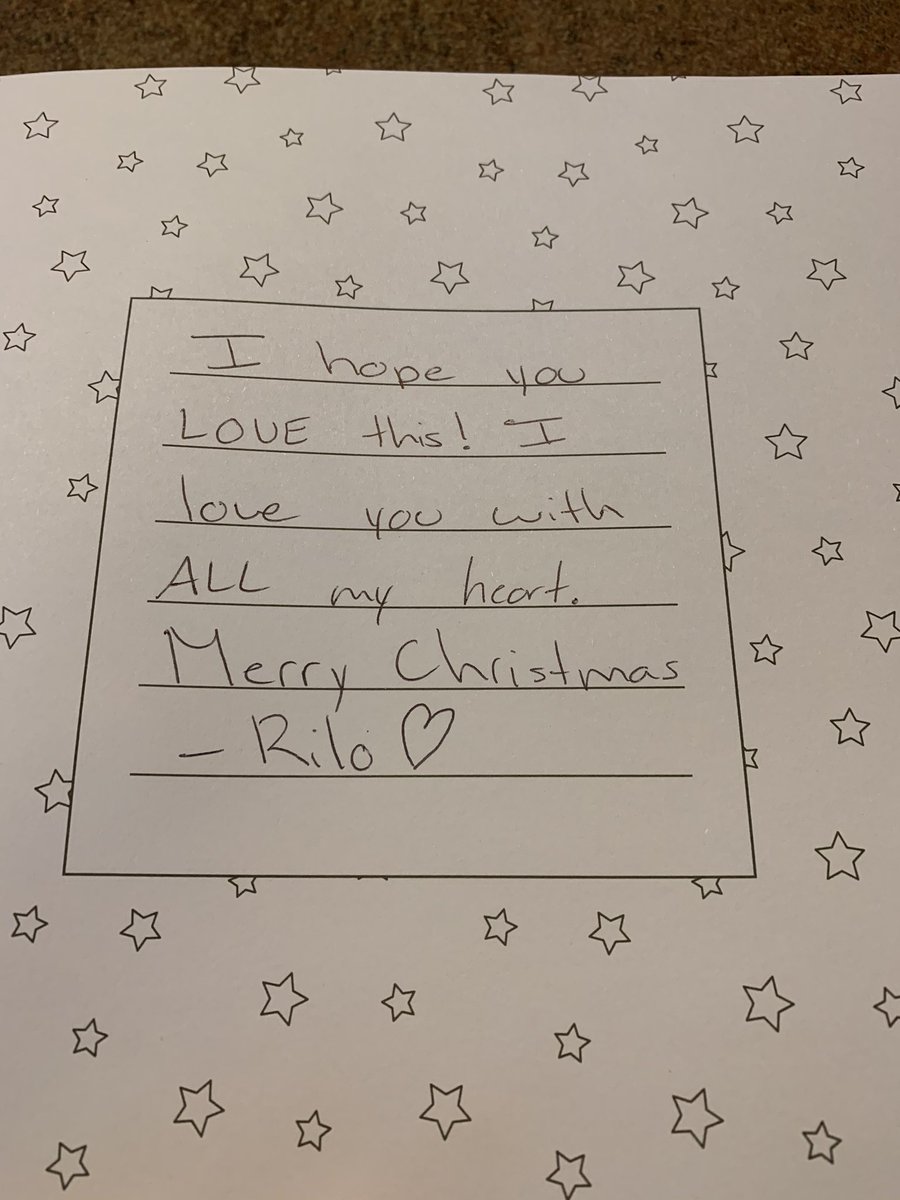 I hope you
LOVE this! I
love you with
ALL my heart.
Merry Christmas
- Rilo ♡